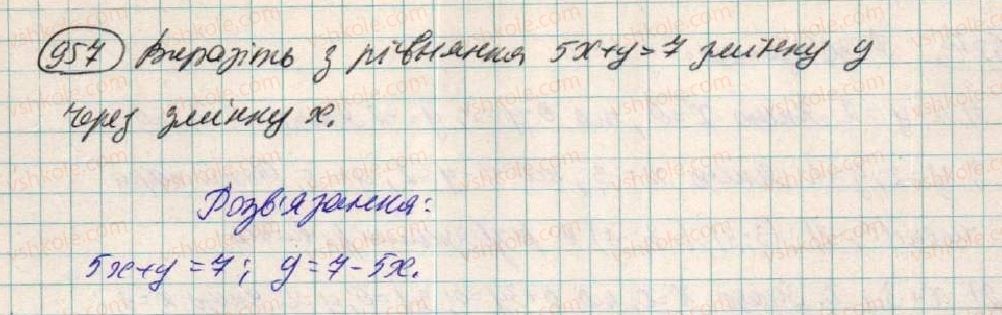 957 Виразіть з рівняння 5x+y=7 змінну y
через змінну x.
Розв'язання:
5x+y=7; y=7-5x.